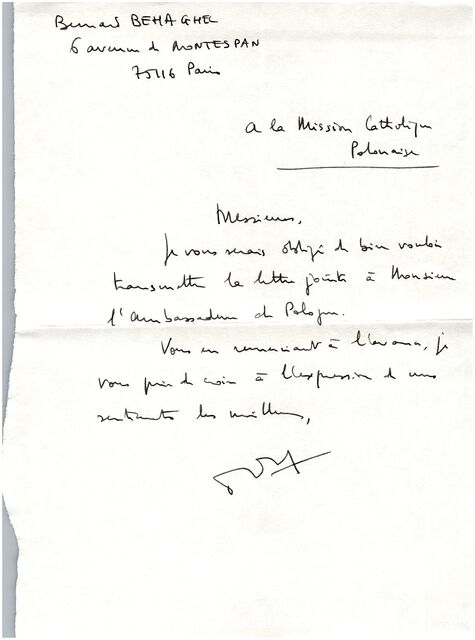 Bernard BEHAGHEL
6 avenue de MONTESPAN
75116 Paris
A la Mission Catholique
Polonaise
Messieurs,
Je vous serais obligé de bien vouloir
transmettre la lettre jointe à Monsieur
l'Ambassadeur de Pologne.
Vous en remerciant à l'avance, je
vous prie de croire à l'expression de mes
sentiments les meilleurs,